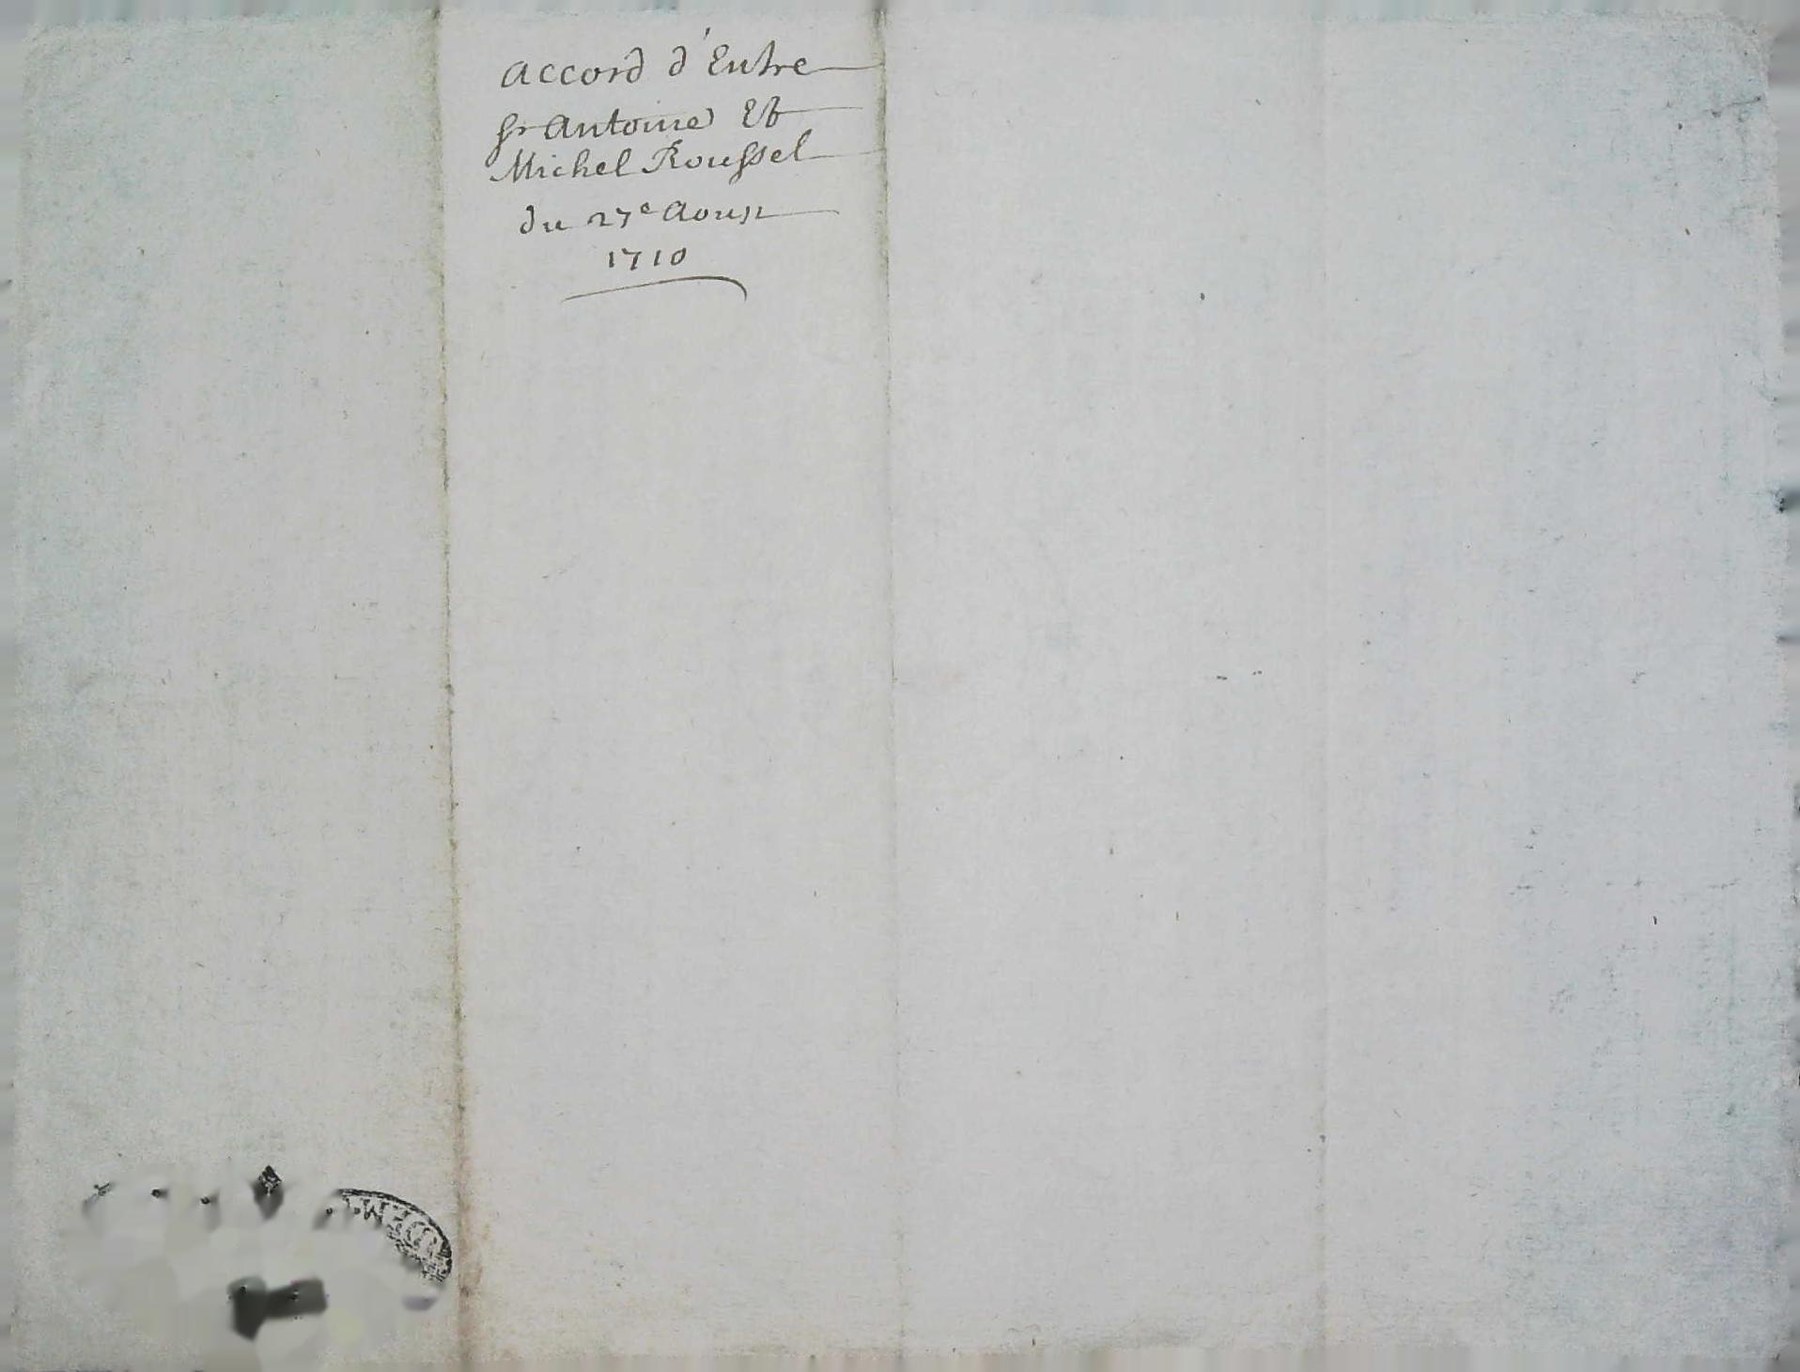 accord d'Entre
Sr Antoine Et
Michel Roussel
du 27e Aoust
1710